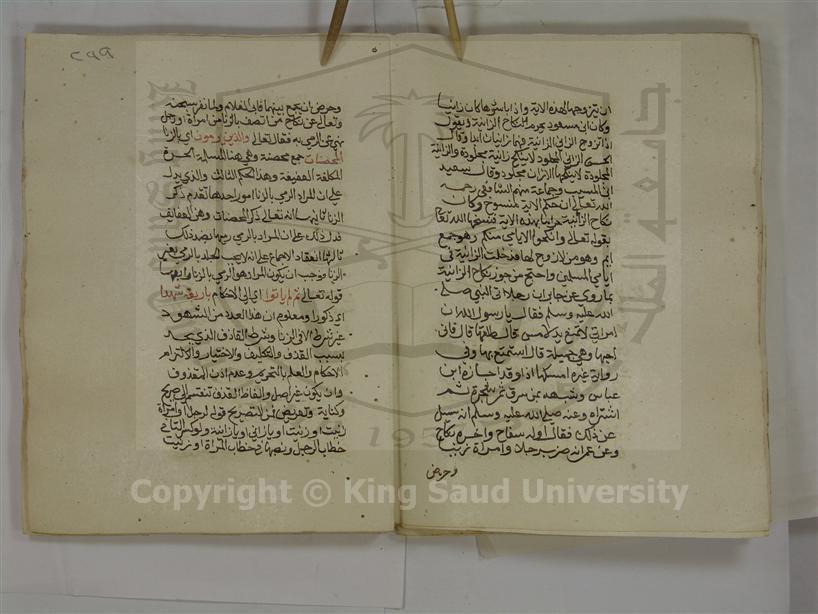 ان يتزوجها لهذه الاية واذا باشرها كان زانيا
وكان ابن مسعود يحرم نكاح الزانية ويقول
اذا تزوج الزاني الزانية فهما زانيان ابدا وقال
الحسن الزاني المجلود لا ينكح الا زانية مجلودة والزانية
المجلودة لا ينكحها الا زان مجلود وقال سعيد
ابن المسيب وجماعة منهم الشافعي رحمه
الله تعالى ان حكم الاية منسوخ وكان
نكاح الزانية حراما بهذه الاية فنسخها الله تعالى
بقوله تعالى وانكحوا الايامى منكم وهو جمع
ايم وهو من لا زوج لها فدخلت الزانية في
ايامى المسلمين واحتج من جوز نكاح الزانية
بما روي عن جابر ان رجلا اتى النبي صلى
الله عليه وسلم فقال يا رسول الله ان
امراتي لا تمنع يد لامس قال طلقها قال فاني
احبها وهي جميلة قال استمتع بها وفي
رواية غيره امسكها اذا وقد اجازه ابن
عباس وشبهه بمن سرق ثمر شجرة ثم
اشتراه وعنه صلى الله عليه وسلم انه سيل
عن ذلك فقال اوله سفاح واخره نكاح
وعن عمر انه ضرب رجلا وامراة زنيا
وحرض
٢٩٩
وحرض ان يجمع بينهما فابى الغلام ولما نفر سبحنه
وتعالى عن نكاح من اتصف بالزنا من امراة او رجل
نهى عن الرمي به فقال تعالى والذين يرمون اي بالزنا
المحصنات جمع محصنة وهي هنا المسلمة الحرة
المكلفة العفيفة وهذا الحكم الثالث والذي يدل
على ان المراد الرمي بالزنا امور احدها تقدم ذكر
الزنا ثانيها انه تعالى ذكر المحصنات وهن العفايف
فدل ذلك على ان المراد بالرمي رميها بضد ذلك
ثالثها انعقاد الاجماع على انه لا يجب الجلد بالرمي بغير
الزنا فوجب ان يكون المراد هو الرمي بالزنا رابعها
قوله تعالى ثم لم ياتوا اي الى الاحكام باربعة شهدا
اي ذكور ومعلوم ان هذا العدد من الشهود
غير شرط الا في الزنا وشرط القاذف الذي يحد
بسبب القذف والتكليف والاختيار والالتزام
الاحكام والعلم بالتحريم وعدم اذن المقذوف
وان يكون غير اصل والفاظ القذف تنقسم الى صريح
وكناية وتعريض فمن التصريح قوله لرجل او امراة
زنيت او زنيت او يا زاني او يا زانية ولو كسر التا في
خطاب الرجل وفتحها في خطاب المراة او زنيت
Copyright © King Saud University
1957